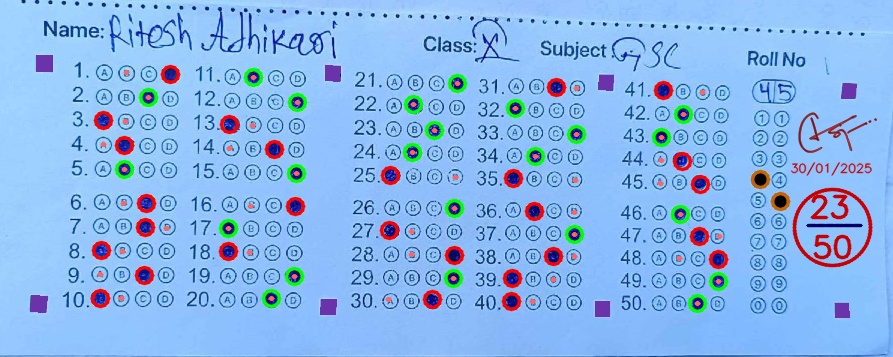 Name: Ritesh Adhikari
Class: X
Subject G SC
Roll No
45
1. A B C D
2. A B C D
3. A B C D
4. A B C D
5. A B C D
6. A B C D
7. A B C D
8. A B C D
9. A B C D
10. A B C D
11. A B C D
12. A B C D
13. A B C D
14. A B C D
15. A B C D
16. A B C D
17. A B C D
18. A B C D
19. A B C D
20. A B C D
21. A B C D
22. A B C D
23. A B C D
24. A B C D
25. A B C D
26. A B C D
27. A B C D
28. A B C D
29. A B C D
30. A B C D
31. A B C D
32. A B C D
33. A B C D
34. A B C D
35. A B C D
36. A B C D
37. A B C D
38. A B C D
39. A B C D
40. A B C D
41. A B C D
42. A B C D
43. A B C D
44. A B C D
45. A B C D
46. A B C D
47. A B C D
48. A B C D
49. A B C D
50. A B C D
1 1
2 2
3 3
4
5
6 6
7 7
8 8
9 9
0 0
30/01/2025
23
50